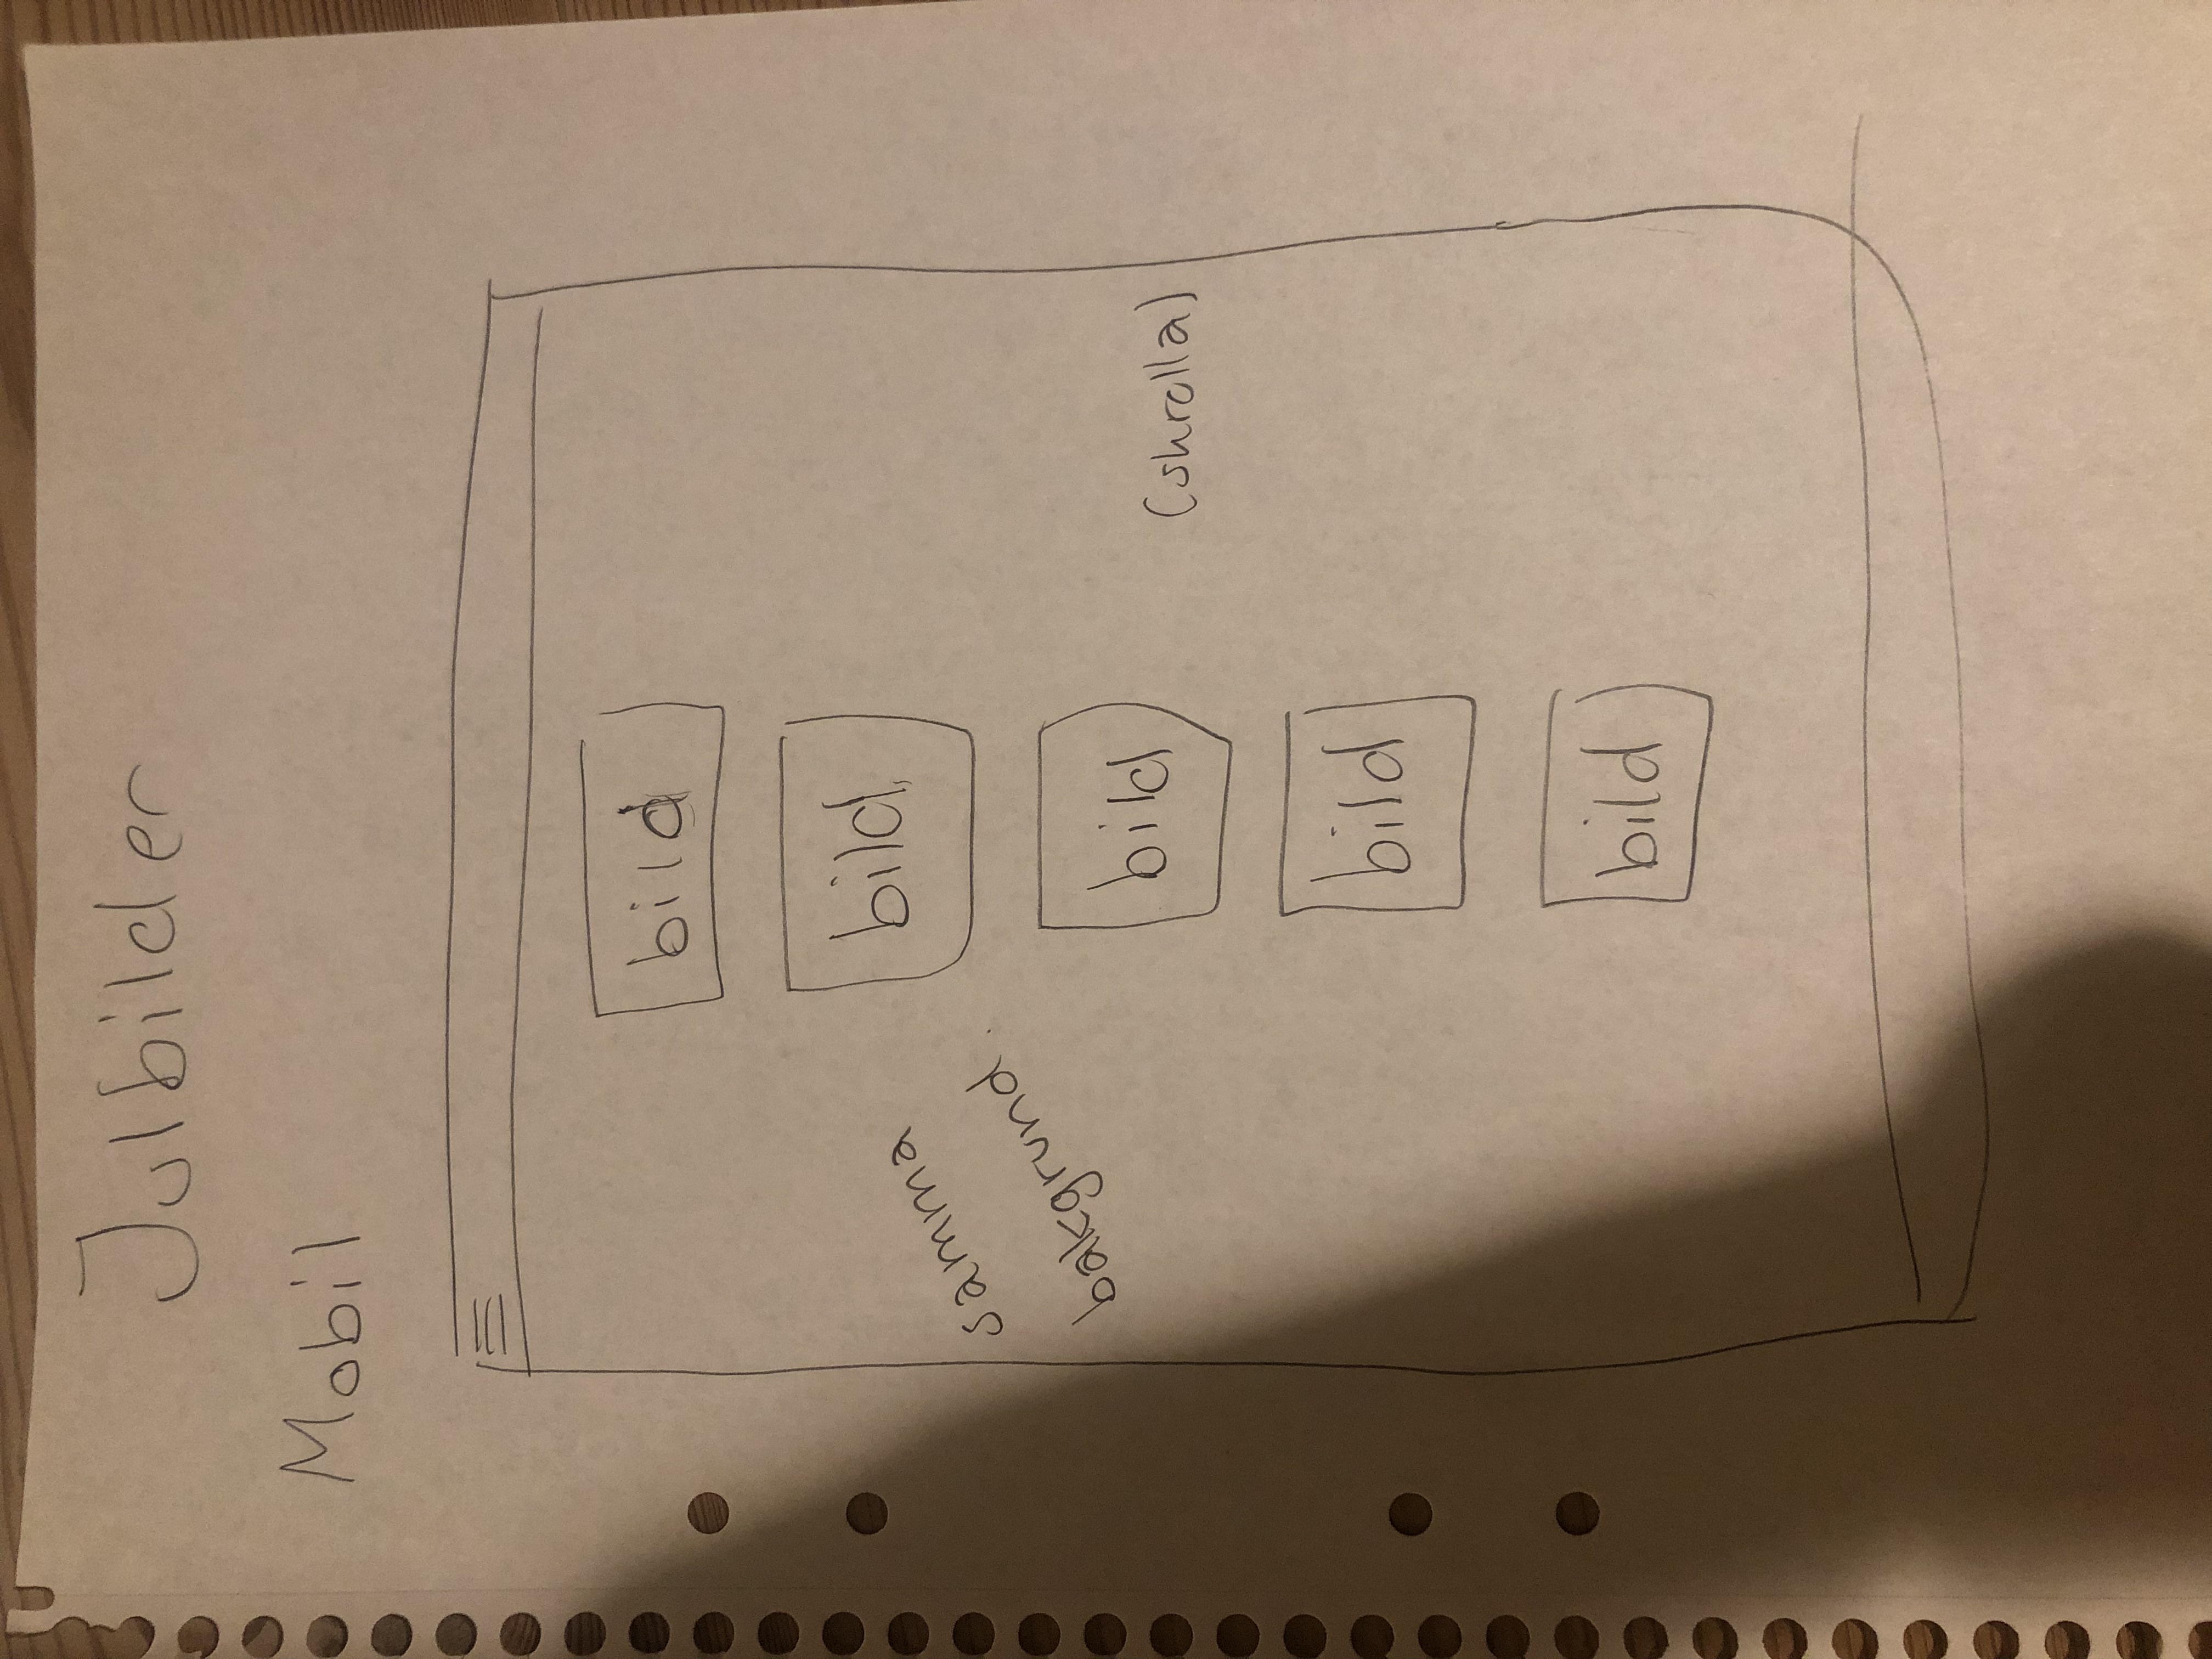 Julbilder
Mobil
bild
bild
samma
bakgrund.
bild
(skrolla)
bild
bild